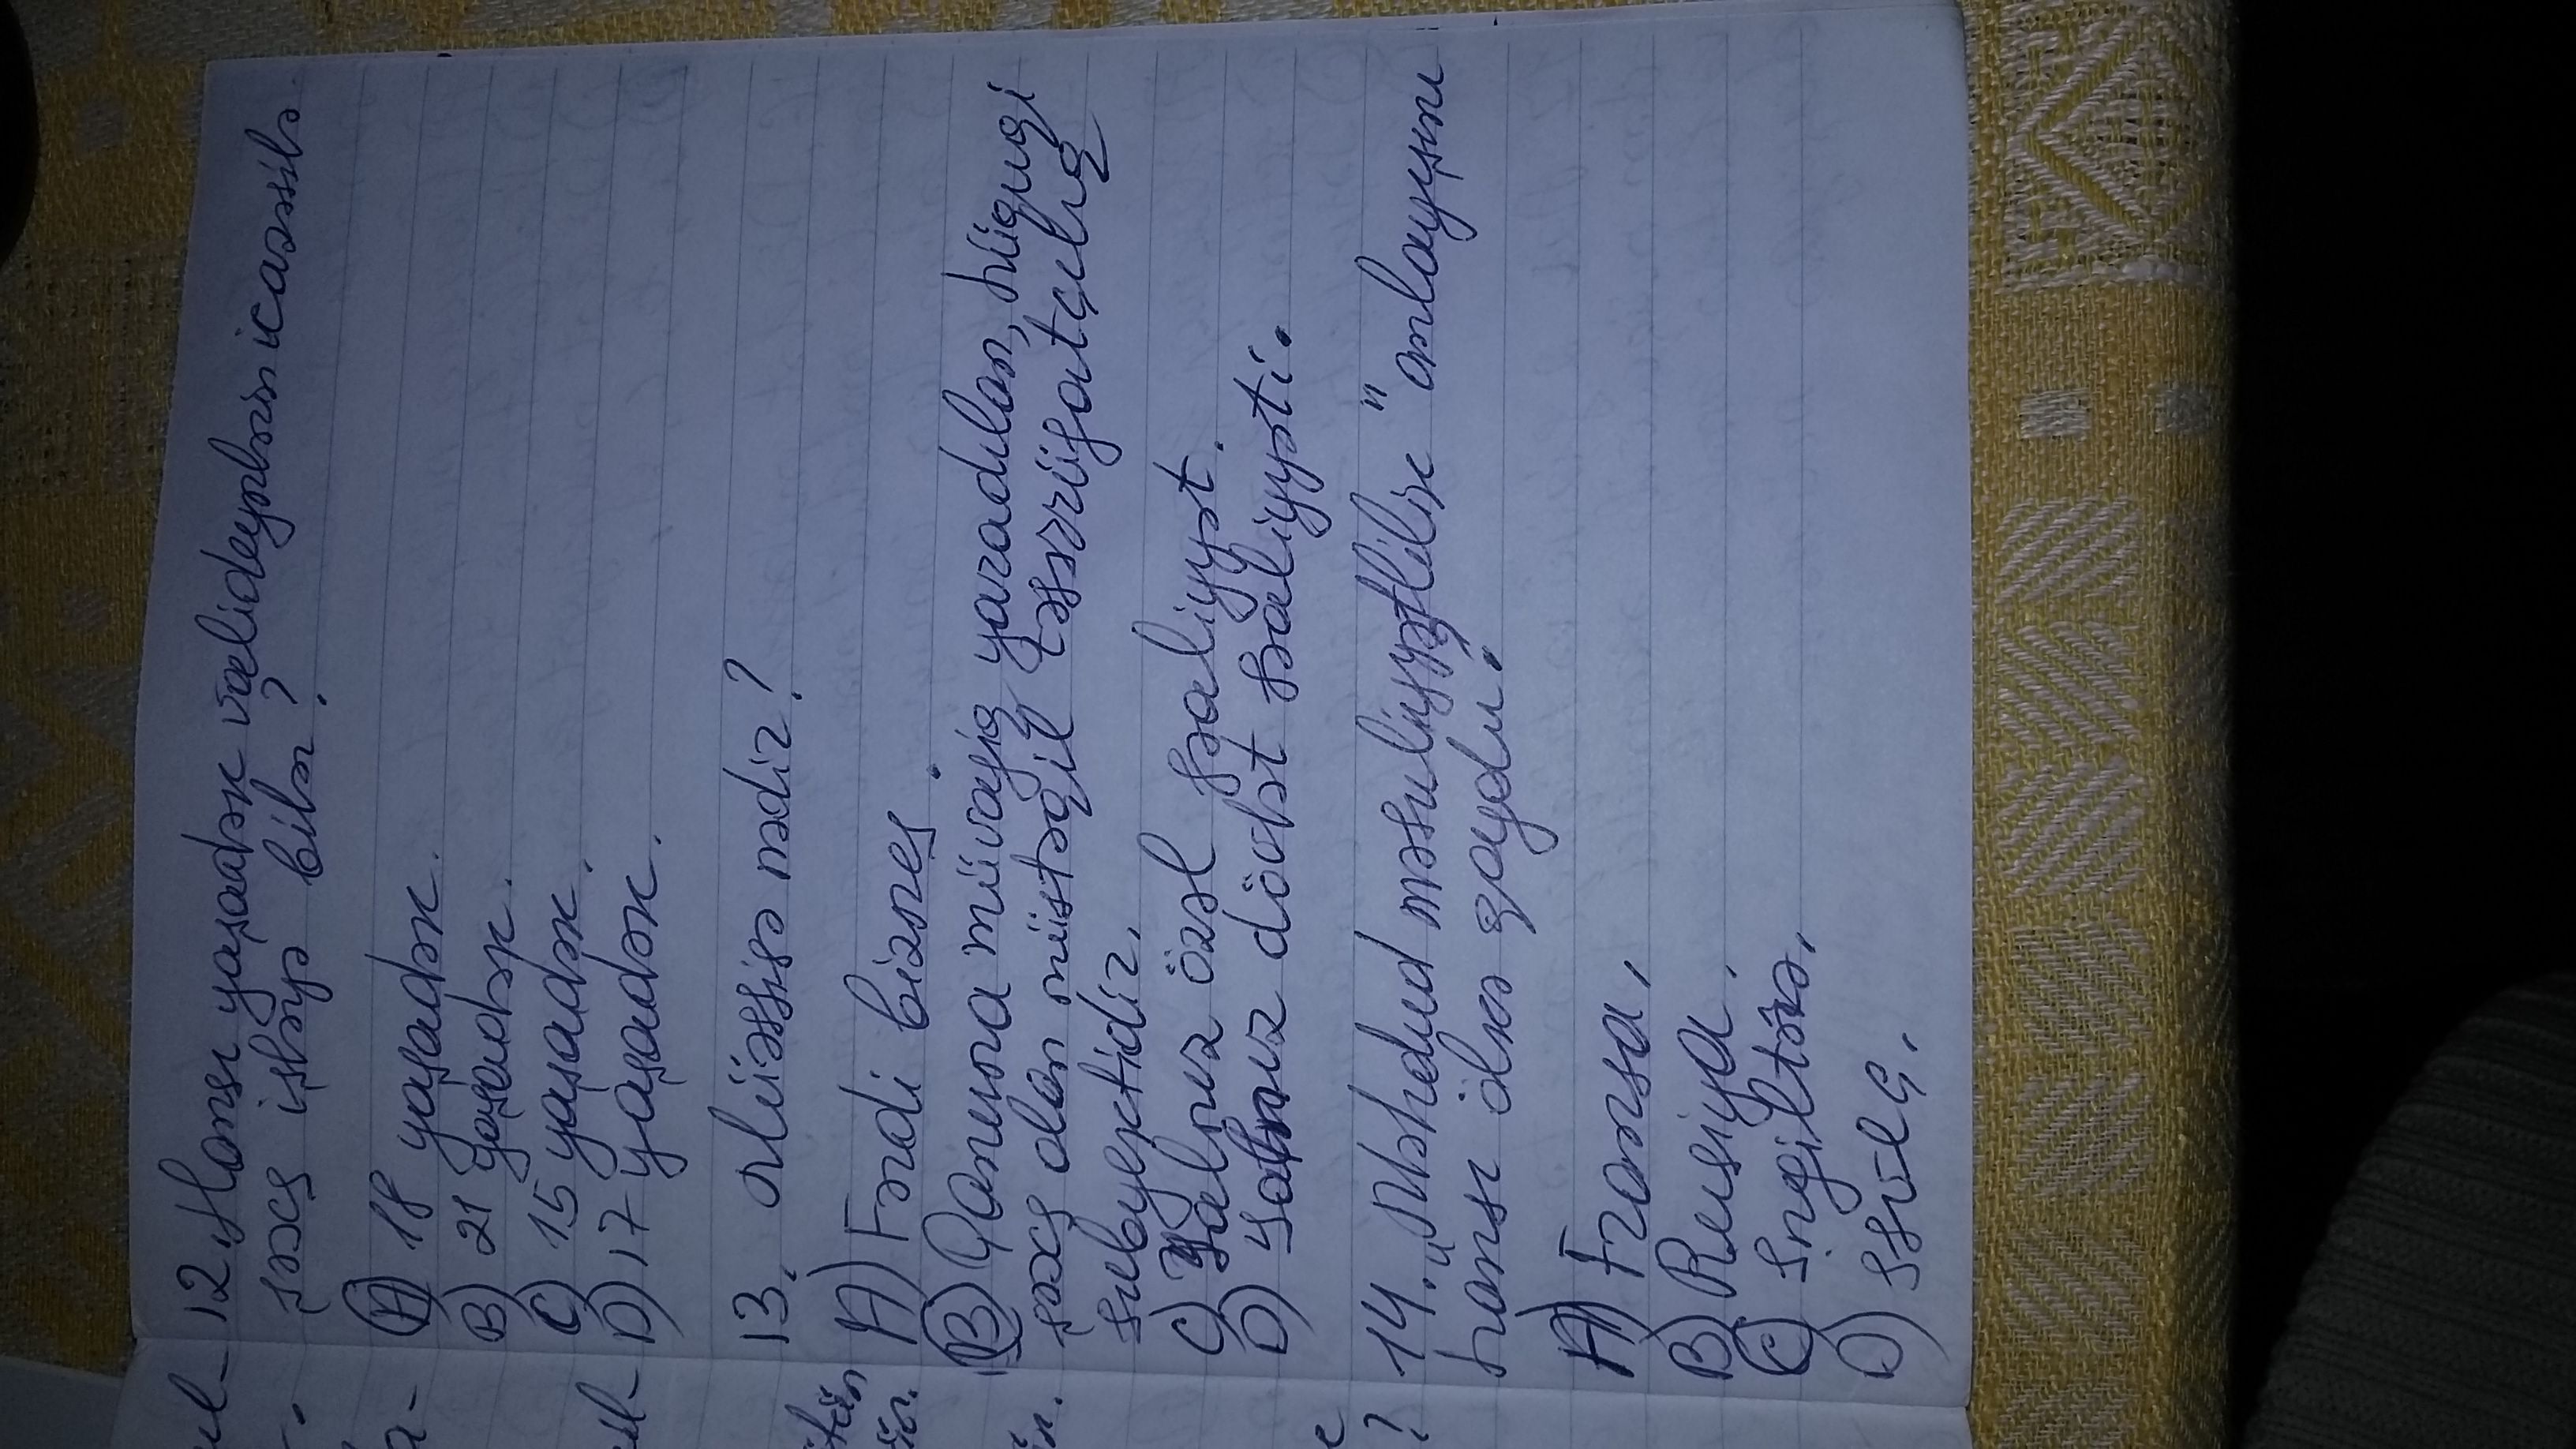 12. Hansı yaşadək valideynlərin icazəsilə
şəxs işləyə bilər?
A) 18 yaşadək.
B) 21 yaşadək.
C) 15 yaşadək.
D) 17 yaşadək.
13. Müəssisə nədir?
A) Fərdi biznes.
B) Qanuna müvafiq yaradılan, hüquqi
şəxs olan müstəqil təsərrüfatçılıq
subyektidir.
C) Yalnız özəl fəaliyyət.
D) Yalnız dövlət fəaliyyəti.
14. „Məhdud məsuliyyətlilik" anlayışını
hansı ölkə qoydu?
A) Fransa.
B) Rusiya.
C) İngiltərə.
D) İsveç.